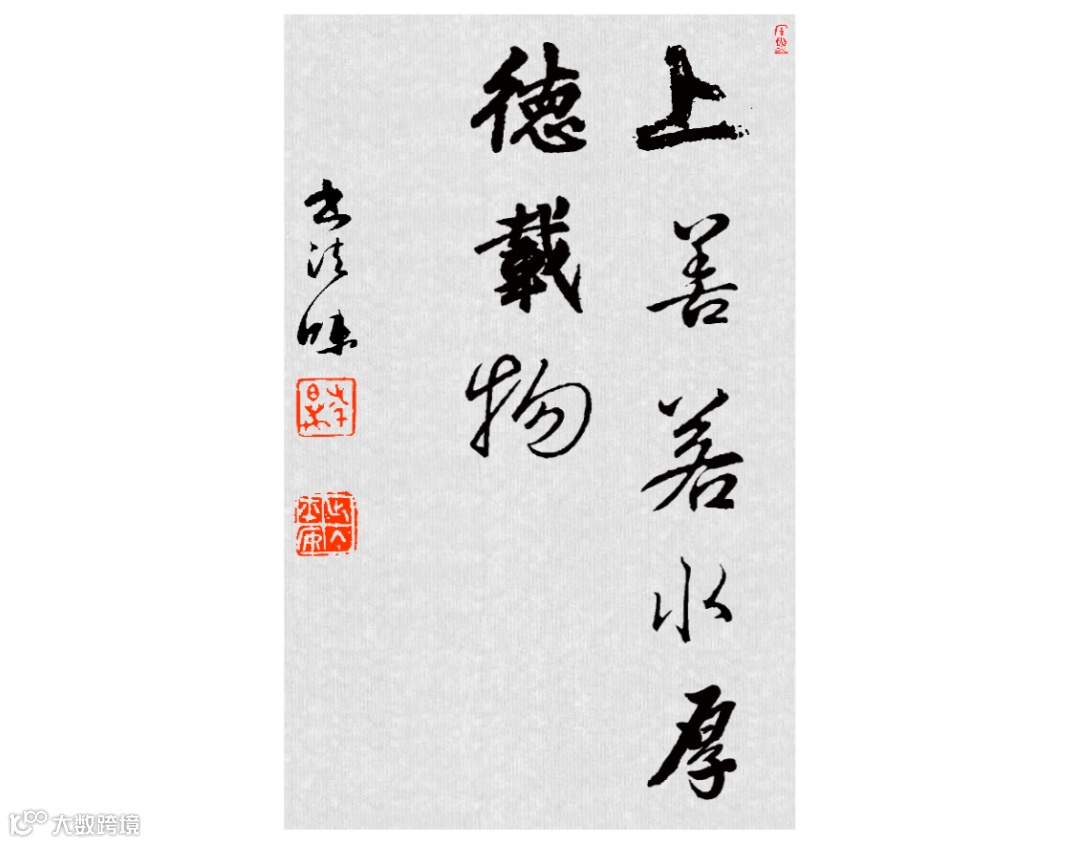 上善若水厚
德载物
书法味
大数跨境